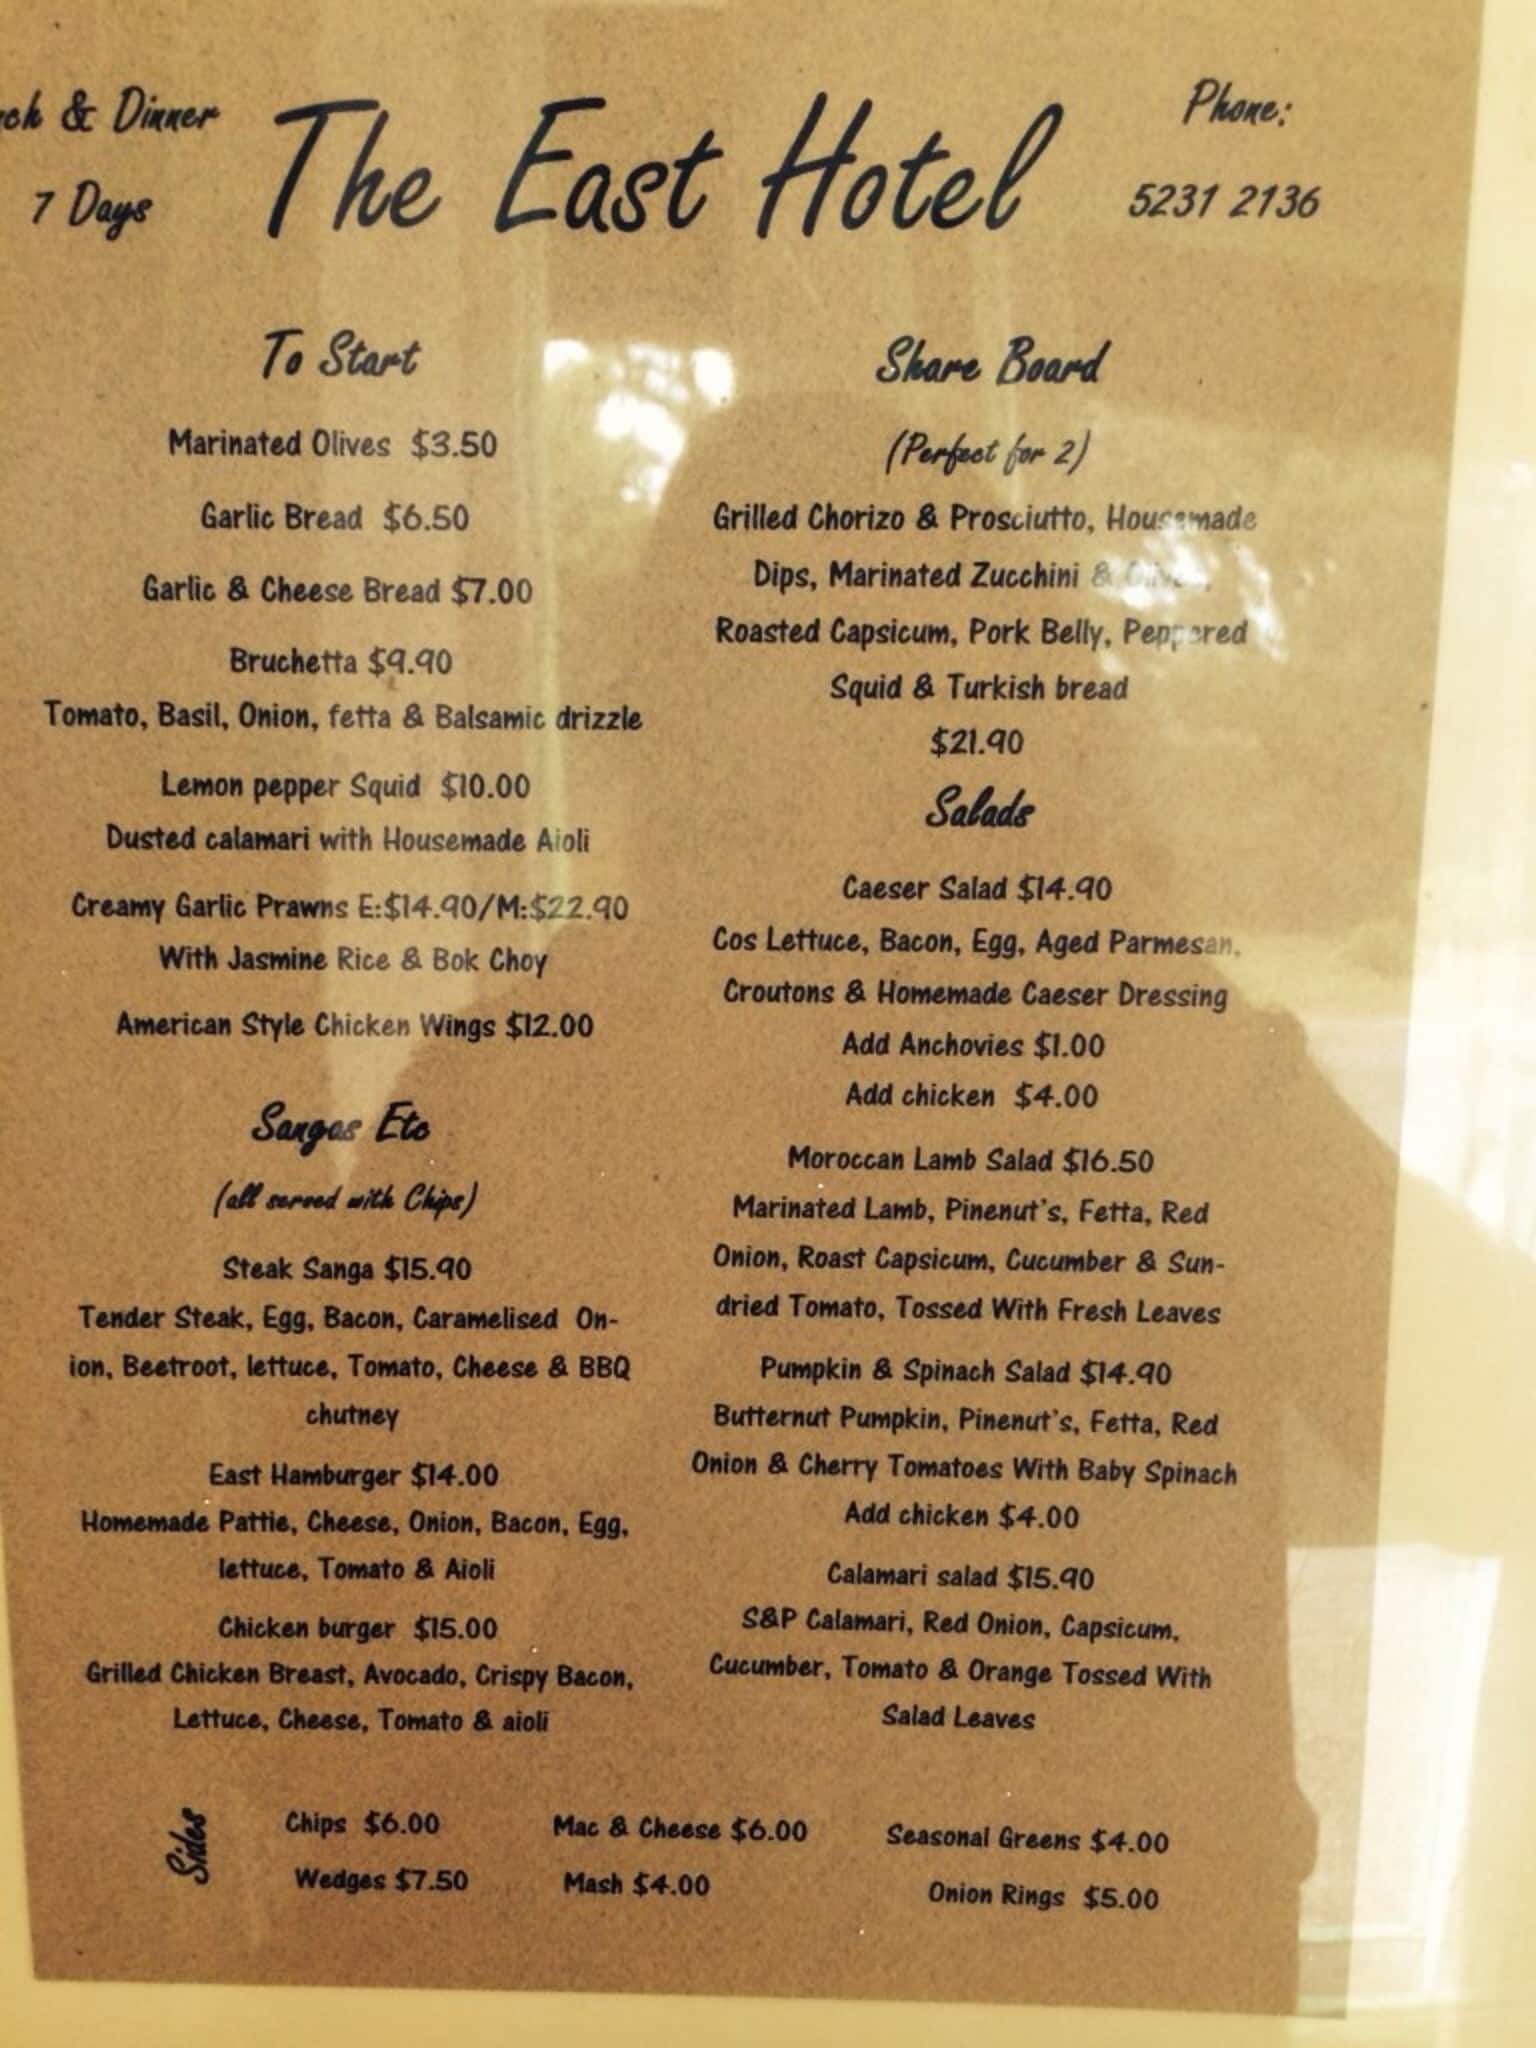 & Dinner
7 Days
The East Hotel
Phone:
5231 2136
To Start
Marinated Olives $3.50
Garlic Bread $6.50
Garlic & Cheese Bread $7.00
Bruchetta $9.90
Tomato, Basil, Onion, fetta & Balsamic drizzle
Lemon pepper Squid $10.00
Dusted calamari with Housemade Aioli
Creamy Garlic Prawns E:$14.90/M:$22.90
With Jasmine Rice & Bok Choy
American Style Chicken Wings $12.00
Sangas Etc
(all served with Chips)
Steak Sanga $15.90
Tender Steak, Egg, Bacon, Caramelised On-
ion, Beetroot, lettuce, Tomato, Cheese & BBQ
chutney
East Hamburger $14.00
Homemade Pattie, Cheese, Onion, Bacon, Egg,
lettuce, Tomato & Aioli
Chicken burger $15.00
Grilled Chicken Breast, Avocado, Crispy Bacon,
Lettuce, Cheese, Tomato & aioli
Share Board
(Perfect for 2)
Grilled Chorizo & Prosciutto, Housemade
Dips, Marinated Zucchini & Olives,
Roasted Capsicum, Pork Belly, Peppered
Squid & Turkish bread
$21.90
Salads
Caeser Salad $14.90
Cos Lettuce, Bacon, Egg, Aged Parmesan,
Croutons & Homemade Caeser Dressing
Add Anchovies $1.00
Add chicken $4.00
Moroccan Lamb Salad $16.50
Marinated Lamb, Pinenut's, Fetta, Red
Onion, Roast Capsicum, Cucumber & Sun-
dried Tomato, Tossed With Fresh Leaves
Pumpkin & Spinach Salad $14.90
Butternut Pumpkin, Pinenut's, Fetta, Red
Onion & Cherry Tomatoes With Baby Spinach
Add chicken $4.00
Calamari salad $15.90
S&P Calamari, Red Onion, Capsicum,
Cucumber, Tomato & Orange Tossed With
Salad Leaves
Sides
Chips $6.00 Mac & Cheese $6.00 Seasonal Greens $4.00
Wedges $7.50 Mash $4.00 Onion Rings $5.00